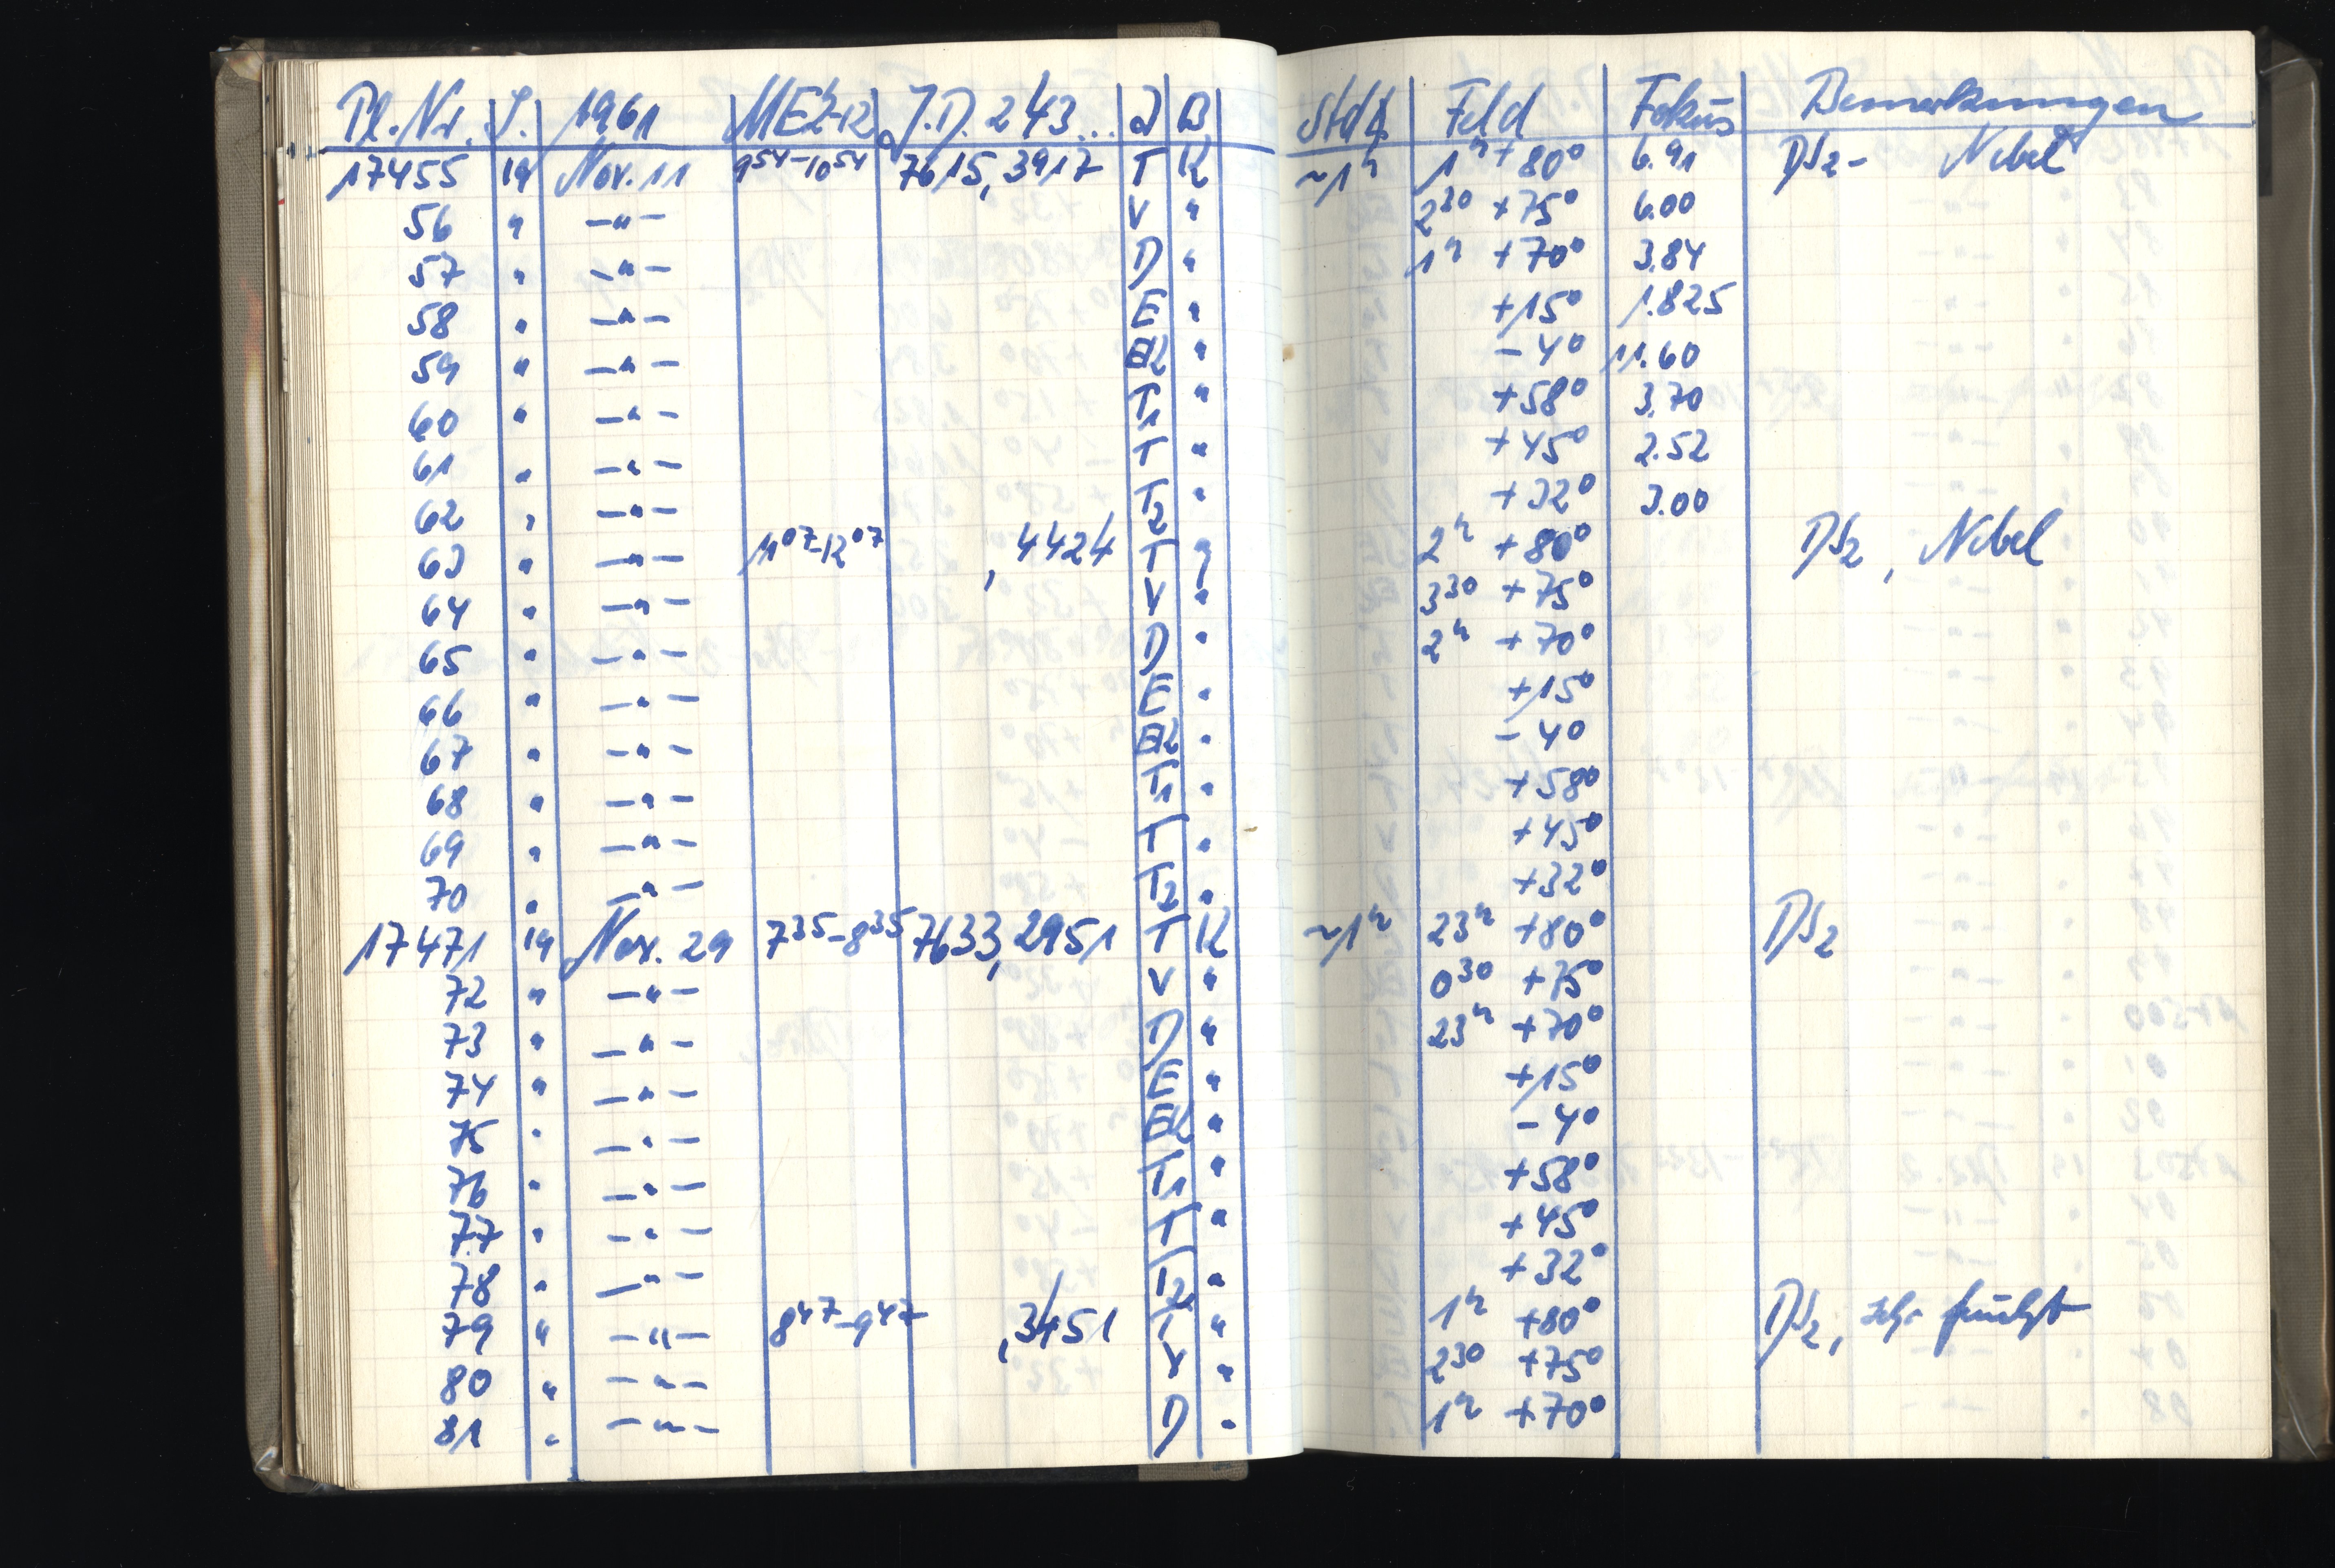 Pl.Nr. J. 1961 MEZ-12 J.D. 243... J B Std∢ Feld Fokus Bemerkungen
17455 19 Nov. 11 9⁵⁴-10⁵⁴ 7615,3917 T K ~1ʰ 1ʰ +80° 6.91 DS₂- Nebel
56 " -"- V " 2³⁰ +75° 6.00
57 " -"- D " 1ʰ +70° 3.84
58 " -"- E " +15° 1.825
59 " -"- " -4° 11.60
60 " -"- T₁ " +58° 3.70
61 " -"- T " +45° 2.52
62 " -"- T₂ " +32° 3.00
63 " -"- 11⁰⁷-12⁰⁷ ,4424 T 2ʰ +80° DS₂, Nebel
64 " -"- V " 3³⁰ +75°
65 " -"- D " 2ʰ +70°
66 " -"- E " +15°
67 " -"- " -4°
68 " -"- T₁ " +58°
69 " -"- T " +45°
70 " -"- T₂ " +32°
17471 19 Nov. 29 7³⁵-8³⁵ 7633,2951 T K ~1ʰ 23ʰ +80° DS₂
72 " -"- V " 0³⁰ +75°
73 " -"- D " 23ʰ +70°
74 " -"- E " +15°
75 " -"- " -4°
76 " -"- T₁ " +58°
77 " -"- T " +45°
78 " -"- T₂ " +32°
79 " -"- 8⁴⁷-9⁴⁷ ,3451 T " 1ʰ +80° DS₂, sehr feucht
80 " -"- V " 2³⁰ +75°
81 " -"- D " 1ʰ +70°